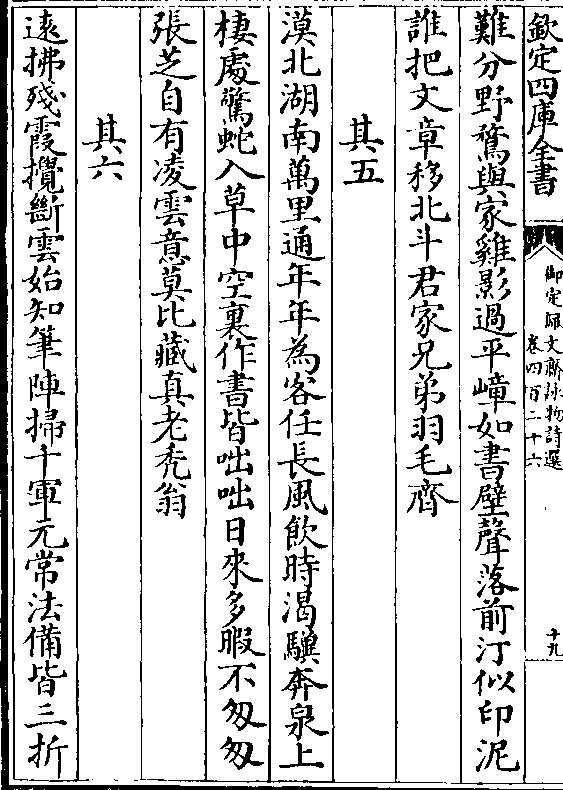 欽定四庫全書
御定歷文齋詠物詩選
卷四百二十六
十九
難分野鶩與家雞影過平嶂如書壁聲落前汀似印泥
誰把文章移北斗君家兄弟羽毛齊
其五
漠北湖南萬里通年年為客任長風飲時渴驥奔泉上
棲處驚蛇入草中空裏作書皆咄咄日來多暇不匆匆
張芝自有凌雲意莫比藏真老禿翁
其六
遠拂殘霞攪斷雲始知筆陣掃千軍元常法備皆三折